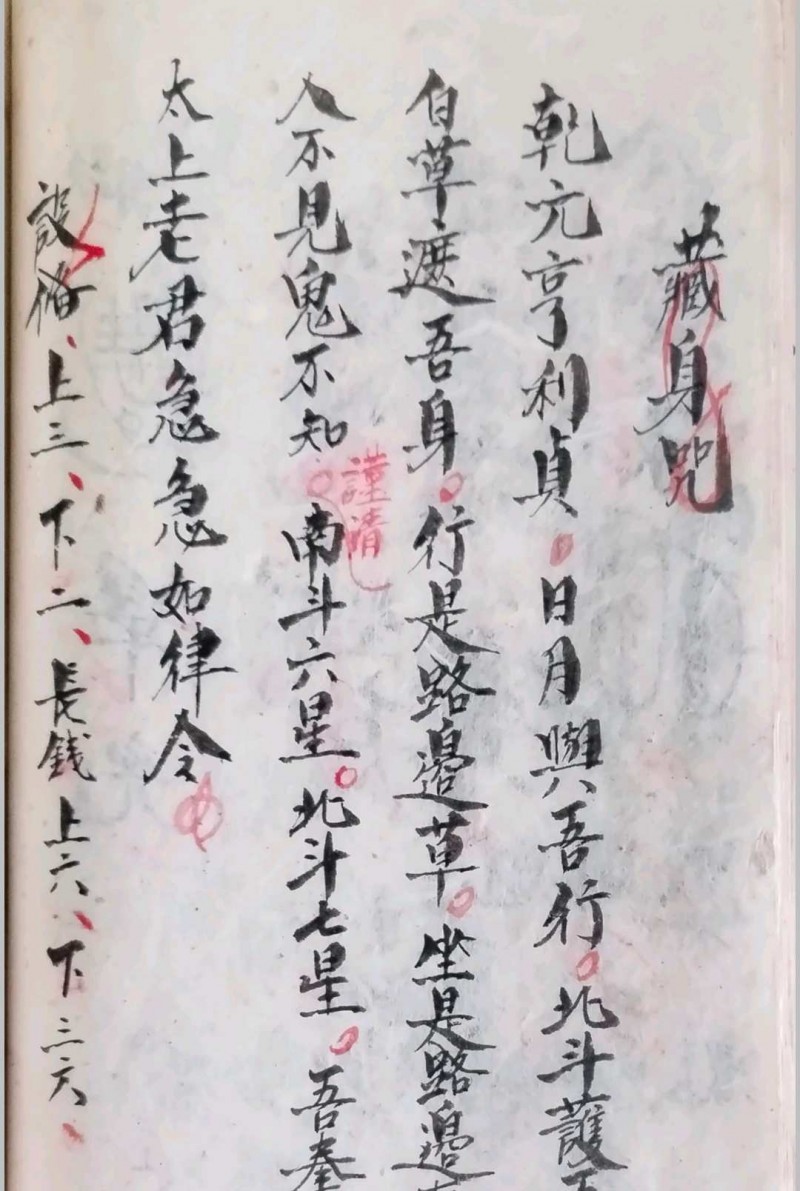 藏身咒
乾亢亨利貞。日月與吾行。北斗護吾
白草遮吾身。行是路邊草。坐是路邊
人不見鬼不知。南斗六星。北斗七星。吾奉
謹請
太上老君急急如律令
設俻、上三、下二、長錢上六、下三六、